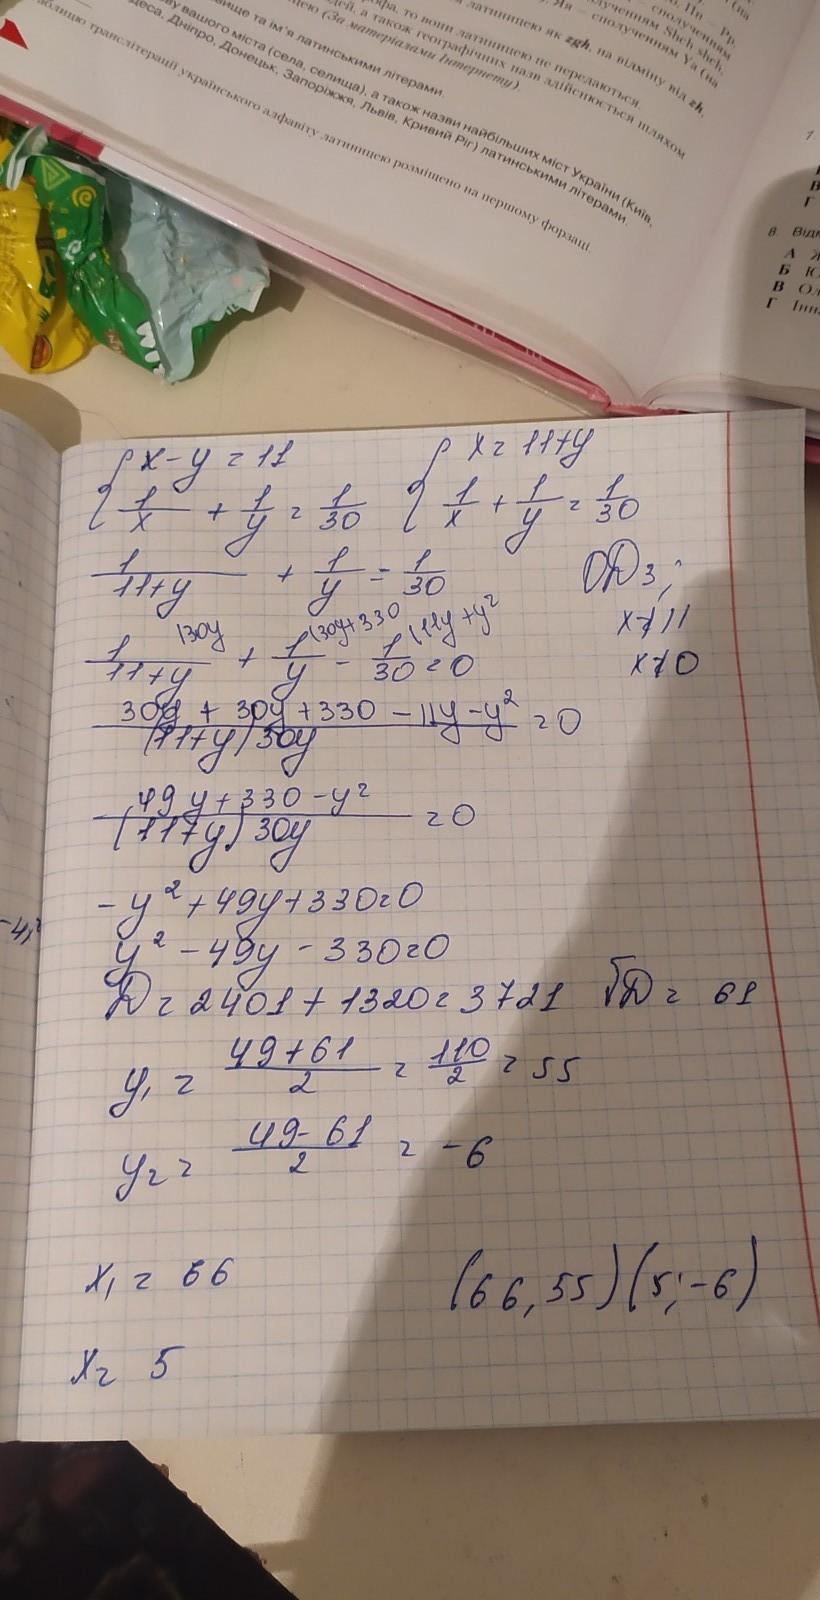 на відміну від zh,
то вони латиницею не передаються.
а також географічних назв здійснюється шляхом
(За матеріалами Інтернету).
та ім'я латинськими літерами.
вашого міста (села, селища), а також назви найбільших міст України (Київ,
Дніпро, Донецьк, Запоріжжя, Львів, Кривий Ріг) латинськими літерами.
транслітерації українського алфавіту латиницею розміщено на першому форзаці.
7
В
Г
8. Відм
А Ж
Б Ю
В Ол
Г Інна
x - y = 11
1/x + 1/y = 1/30
x = 11+y
1/x + 1/y = 1/30
1/(11+y) + 1/y = 1/30
ОДЗ:
x≠11
x≠0
1/(11+y) (30y + 1/y (30y+330 - 1/30 (11y+y² = 0
(30y + 30y + 330 - 11y - y²)/((11+y)30y) = 0
(49y + 330 - y²)/((11+y)30y) = 0
-y² + 49y + 330 = 0
y² - 49y - 330 = 0
D = 2401 + 1320 = 3721 √D = 61
y₁ = (49+61)/2 = 110/2 = 55
y₂ = (49-61)/2 = -6
x₁ = 66
(66, 55) (5; -6)
x₂ 5